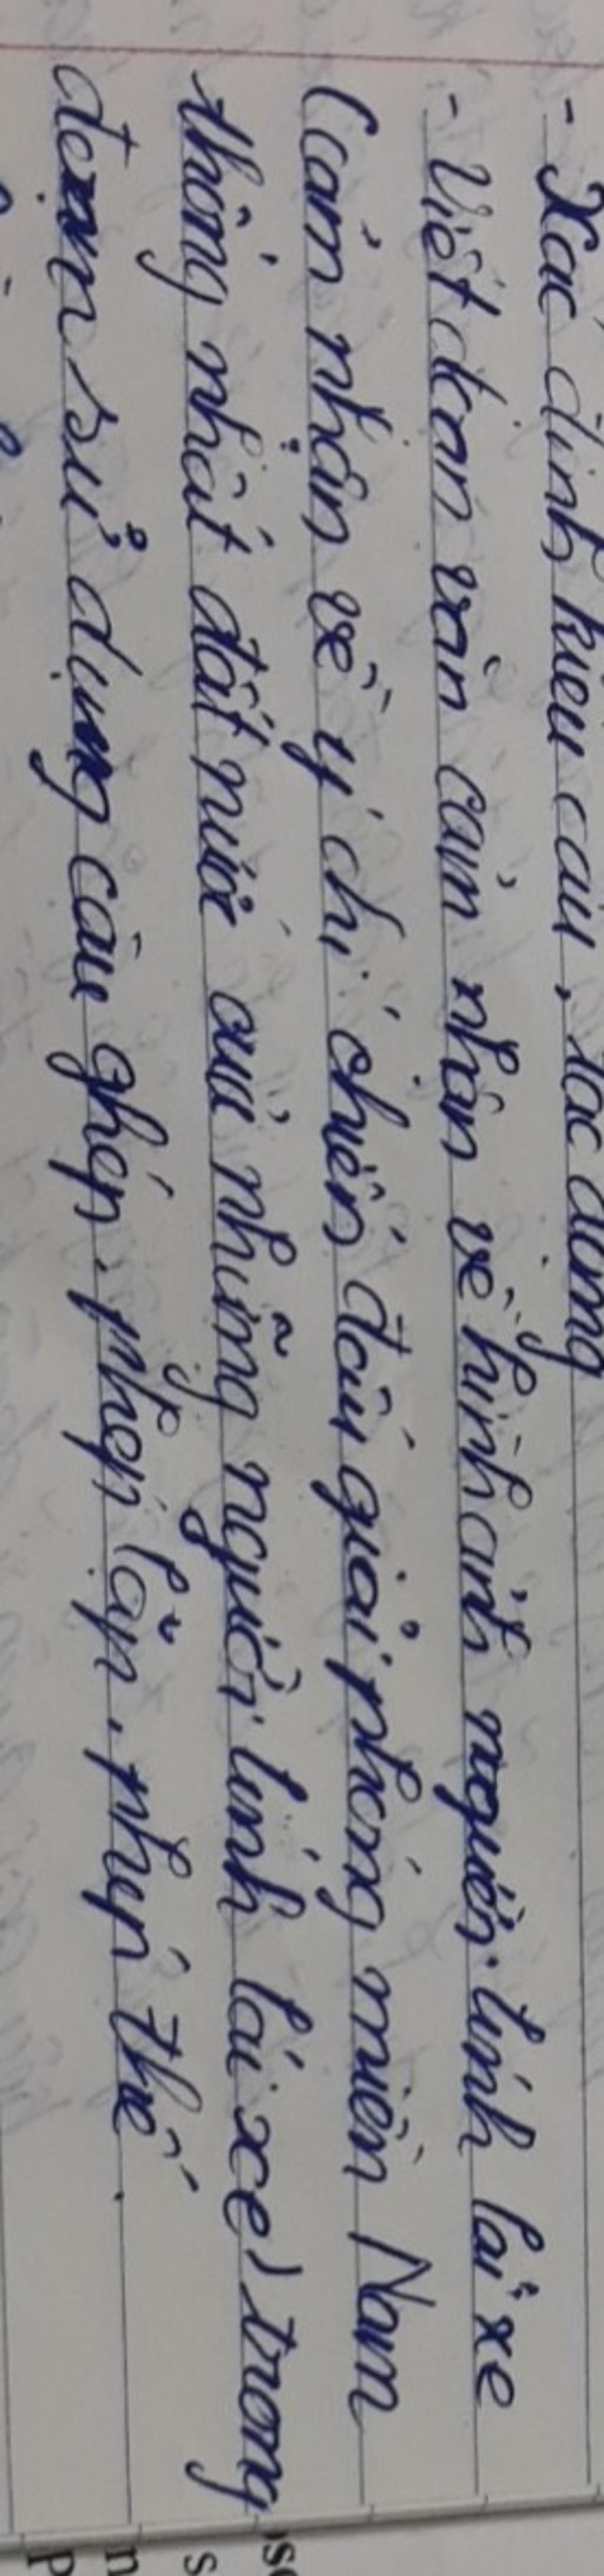 - Xác định kiểu câu, tác dụng
- Viết đoạn văn cảm nhận về hình ảnh người lính lái xe
(cảm nhận về ý chí chiến đấu giải phóng miền Nam
thống nhất đất nước của những người lính lái xe) trong
đoạn sử dụng câu ghép, phép lặp, phép thế.